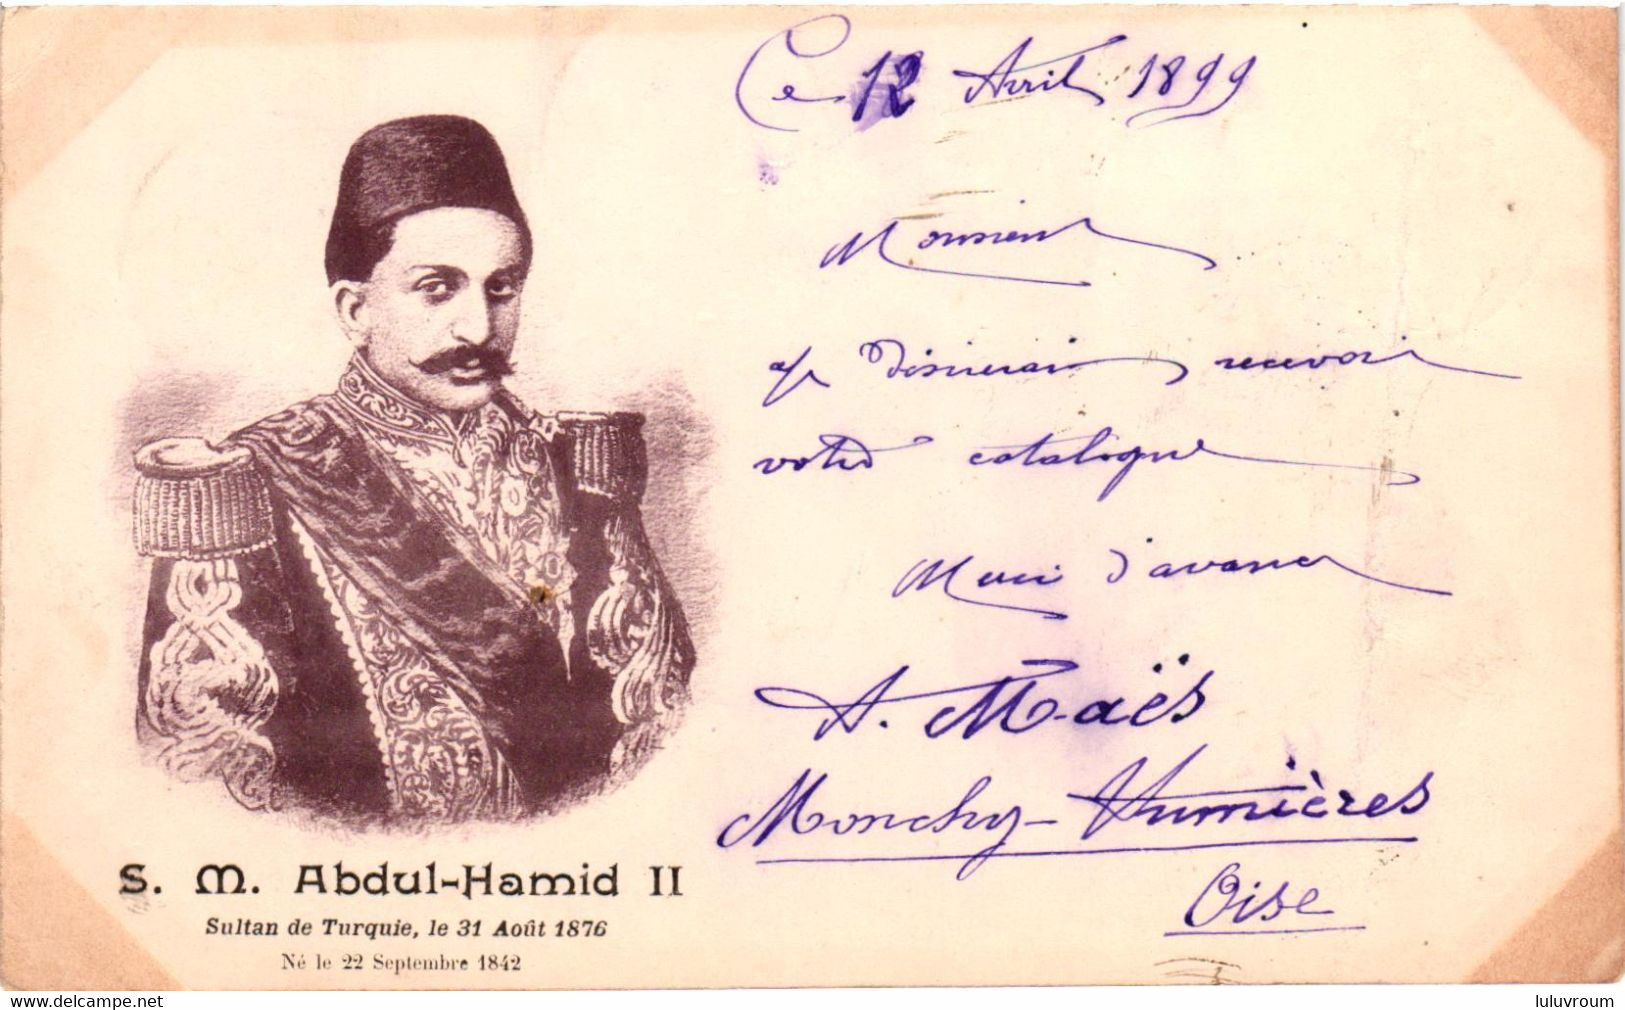 S. M. Abdul-Hamid II
Sultan de Turquie, le 31 Août 1876
Né le 22 Septembre 1842
Ce 12 Avril 1899
Monsieur
Je désirerais recevoir
votre catalogue
Merci d'avance
A. Maës
Monchy-Humières
Oise
www.delcampe.net
luluvroum